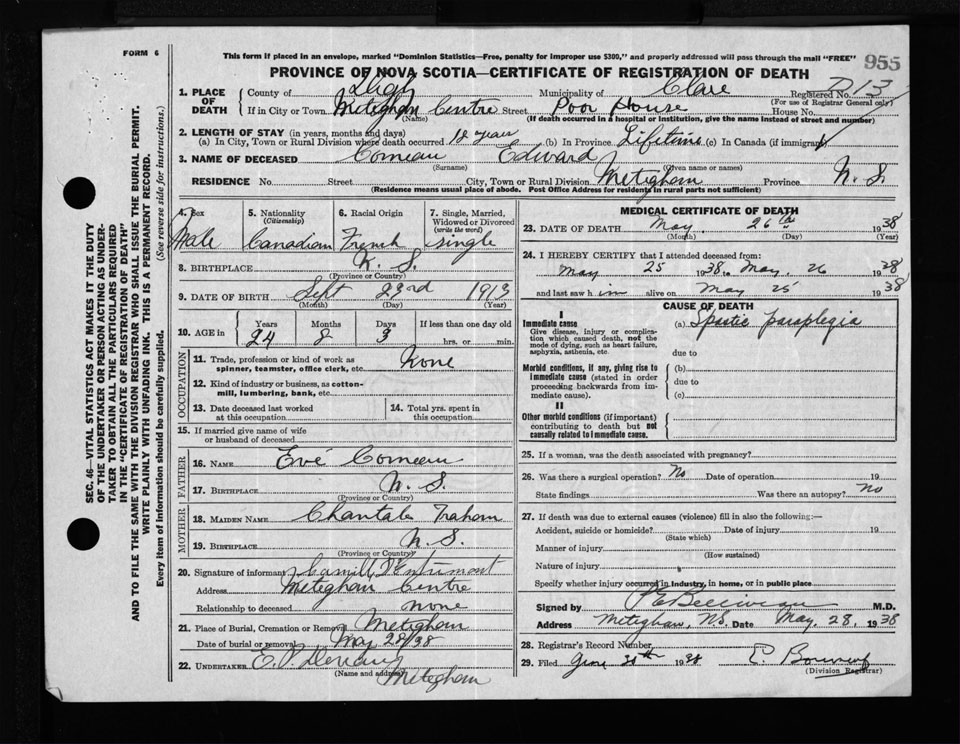 FORM 6
This form if placed in an envelope, marked "Dominion Statistics—Free, penalty for improper use $300," and properly addressed will pass through the mail "FREE"
955
PROVINCE OF NOVA SCOTIA—CERTIFICATE OF REGISTRATION OF DEATH
1. PLACE OF DEATH
County of Digby Municipality of Clare Registered No. D 13
(For use of Registrar General only)
If in City or Town Meteghan Centre Street Poor House House No.
(Name) (If death occurred in a hospital or institution, give the name instead of street and number)
2. LENGTH OF STAY (in years, months and days)
(a) In City, Town or Rural Division where death occurred 10 years (b) In Province Lifetime (c) In Canada (if immigrant)
3. NAME OF DECEASED Comeau Edward
(Surname) (Given name or names)
RESIDENCE No. Street City, Town or Rural Division Meteghan Province N. S.
(Residence means usual place of abode. Post Office Address for residents in rural parts not sufficient)
4. Sex Male
5. Nationality (Citizenship) Canadian
6. Racial Origin French
7. Single, Married, Widowed or Divorced (write the word) single
8. BIRTHPLACE N. S.
(Province or Country)
9. DATE OF BIRTH Sept 23rd 1913
(Month) (Day) (Year)
10. AGE in Years 24 Months 8 Days 3 If less than one day old hrs. or min.
OCCUPATION
11. Trade, profession or kind of work as spinner, teamster, office clerk, etc. None
12. Kind of industry or business, as cotton-mill, lumbering, bank, etc.
13. Date deceased last worked at this occupation
14. Total yrs. spent in this occupation
15. If married give name of wife or husband of deceased
FATHER
16. NAME Evé Comeau
17. BIRTHPLACE N. S.
(Province or Country)
MOTHER
18. MAIDEN NAME Chantale
19. BIRTHPLACE N. S.
(Province or Country)
20. Signature of informant Camille D'Entremont
Address Meteghan Centre
Relationship to deceased none
21. Place of Burial, Cremation or Removal Meteghan
Date of burial or removal May 28/38
22. UNDERTAKER E.
(Name and address) Meteghan
MEDICAL CERTIFICATE OF DEATH
23. DATE OF DEATH May 26th 1938
(Month) (Day) (Year)
24. I HEREBY CERTIFY that I attended deceased from:
May 25 1938 to May, 26 1938
and last saw him alive on May 25 1938
CAUSE OF DEATH
I
Immediate cause
Give disease, injury or complication which caused death, not the mode of dying, such as heart failure, asphyxia, asthenia, etc.
(a) Spastic paraplegia
due to
Morbid conditions, if any, giving rise to immediate cause (stated in order proceeding backwards from immediate cause).
(b)
due to
(c)
II
Other morbid conditions (if important) contributing to death but not causally related to immediate cause.
25. If a woman, was the death associated with pregnancy?
26. Was there a surgical operation? No Date of operation 19
State findings Was there an autopsy? No
27. If death was due to external causes (violence) fill in also the following:—
Accident, suicide or homicide? Date of injury 19
(State which)
Manner of injury
(How sustained)
Nature of injury
Specify whether injury occurred in industry, in home, or in public place
Signed by P E Belliveau M.D.
Address Meteghan, NS. Date May, 28, 1938
28. Registrar's Record Number
29. Filed 30th 1938 E.
(Division Registrar)
SEC. 46—VITAL STATISTICS ACT MAKES IT THE DUTY
OF THE UNDERTAKER OR PERSON ACTING AS UNDER-
TAKER TO OBTAIN ALL THE PARTICULARS REQUIRED
IN THE "CERTIFICATE OF REGISTRATION OF DEATH"
AND TO FILE THE SAME WITH THE DIVISION REGISTRAR WHO SHALL ISSUE THE BURIAL PERMIT.
WRITE PLAINLY WITH UNFADING INK. THIS IS A PERMANENT RECORD.
Every item of information should be carefully supplied. (See reverse side for instructions.)